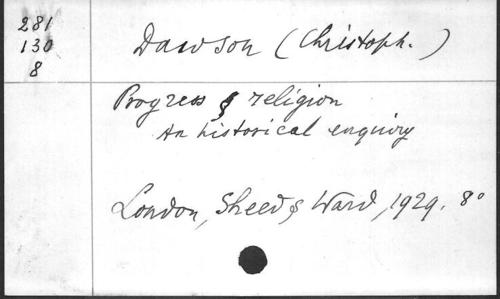 281
130
8
Dawson (Christoph.)
Progress & religion
An historical enquiry
London, Sheed & Ward, 1929. 8°